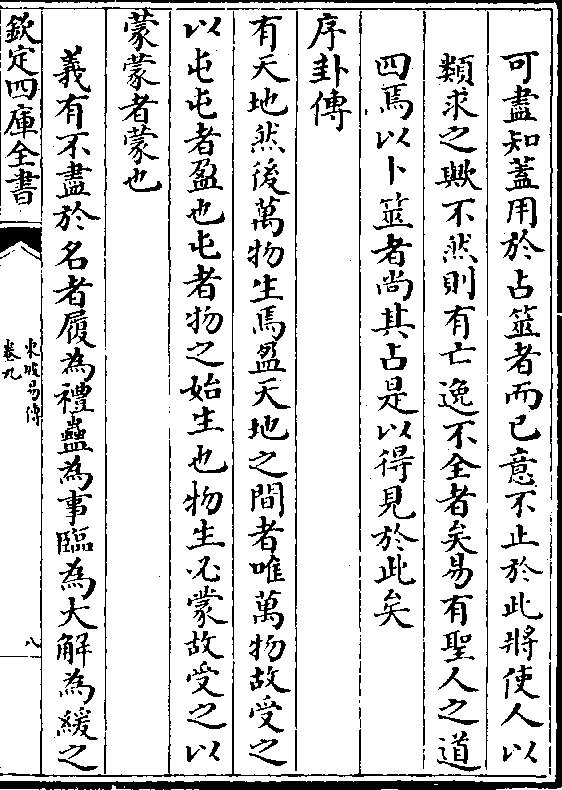 可盡知蓋用於占筮者而已意不止於此將使人以
類求之歟不然則有亡逸不全者矣易有聖人之道
四焉以卜筮者尚其占是以得見於此矣
序卦傳
有天地然後萬物生焉盈天地之間者唯萬物故受之
以屯屯者盈也屯者物之始生也物生必蒙故受之以
蒙蒙者蒙也
義有不盡於名者履為禮蠱為事臨為大解為緩之
欽定四庫全書
東坡易傳
卷九
八